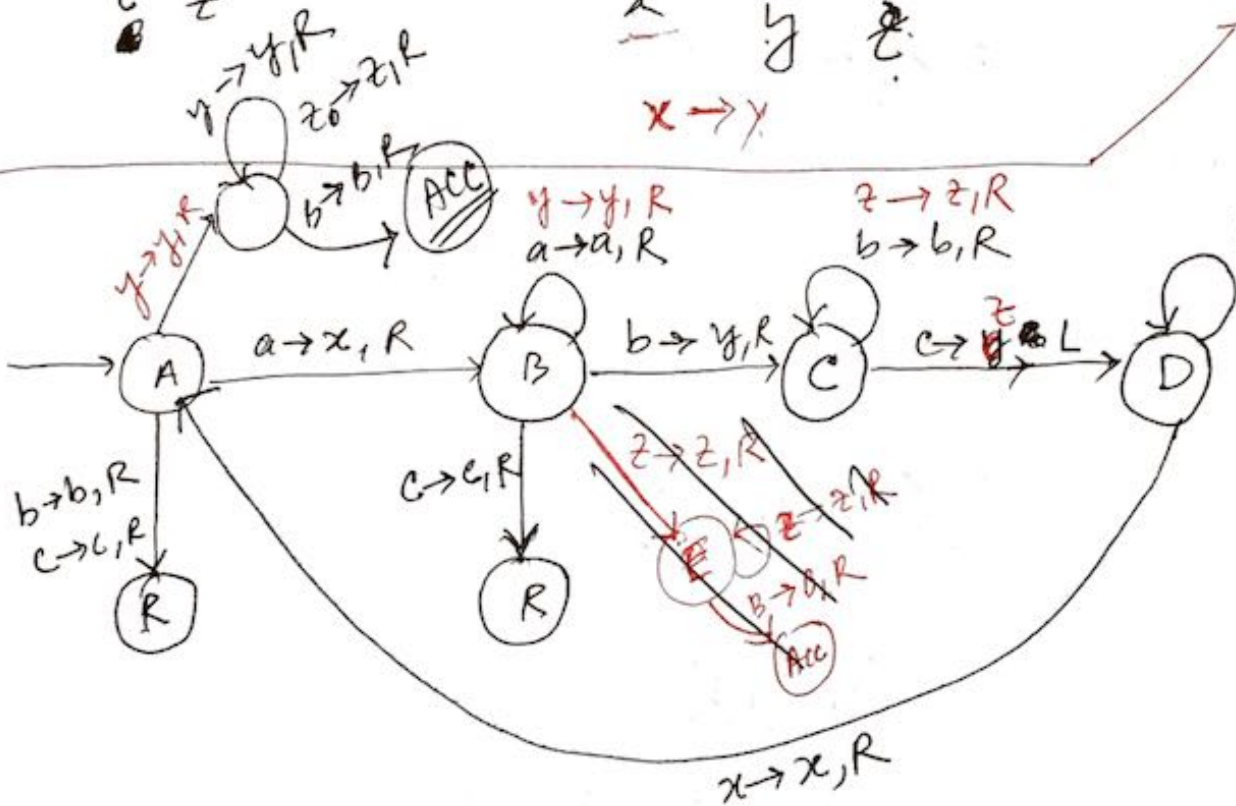 z
y z
y → y, R
z → z, R
x → y
b → B, R
ACC
y → y, R
y → y, R
a → a, R
z → z, R
b → b, R
A
a → x, R
B
b → y, R
C
z
c → L
D
b → b, R
c → c, R
c → c, R
z → z, R
z → z, R
E
R
R
B → B, R
ACC
x → x, R